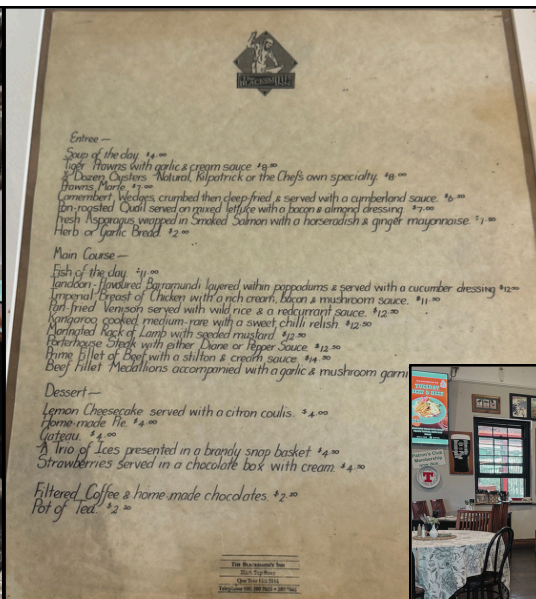 THE
BLACKSMITH'S
INN
Entree —
Soup of the day $4.00
Tiger Prawns with garlic & cream sauce $8.00
Dozen Oysters Natural, Kilpatrick or the Chef's own specialty. $8.00
Prawns Marie. $7.00
Camembert Wedges, crumbed then deep-fried & served with a cumberland sauce. $6.00
Pan-roasted Quail served on mixed lettuce with a bacon & almond dressing $7.00
Fresh Asparagus wrapped in Smoked Salmon with a horseradish & ginger mayonnaise.
Herb or Garlic Bread $2.00
Main Course —
Fish of the day $11.00
Tandoori-flavoured Barramundi layered within poppodums & served with a cucumber dressing $12.50
Imperial Breast of Chicken with a rich cream, bacon & mushroom sauce. $11.00
Pan-fried Venison served with wild rice & a redcurrant sauce. $12.50
Kangaroo cooked medium-rare with a sweet chilli relish $12.50
Marinated Rack of Lamb with seeded mustard $12.50
Porterhouse Steak with either Diane or Pepper Sauce $12.50
Prime fillet of Beef with a stilton & cream sauce $14.00
Beef Fillet Medallions accompanied with a garlic & mushroom garni
Dessert —
Lemon Cheesecake served with a citron coulis. $4.00
Home-made Pie. $4.00
Gateau. $4.00
A Trio of Ices presented in a brandy snap basket $4.00
Strawberries served in a chocolate box with cream. $4.00
Filtered Coffee & home made chocolates. $2.50
Pot of Tea $2.50
The Blacksmith's Inn
TUESDAY
Patron's Club
Membership
T